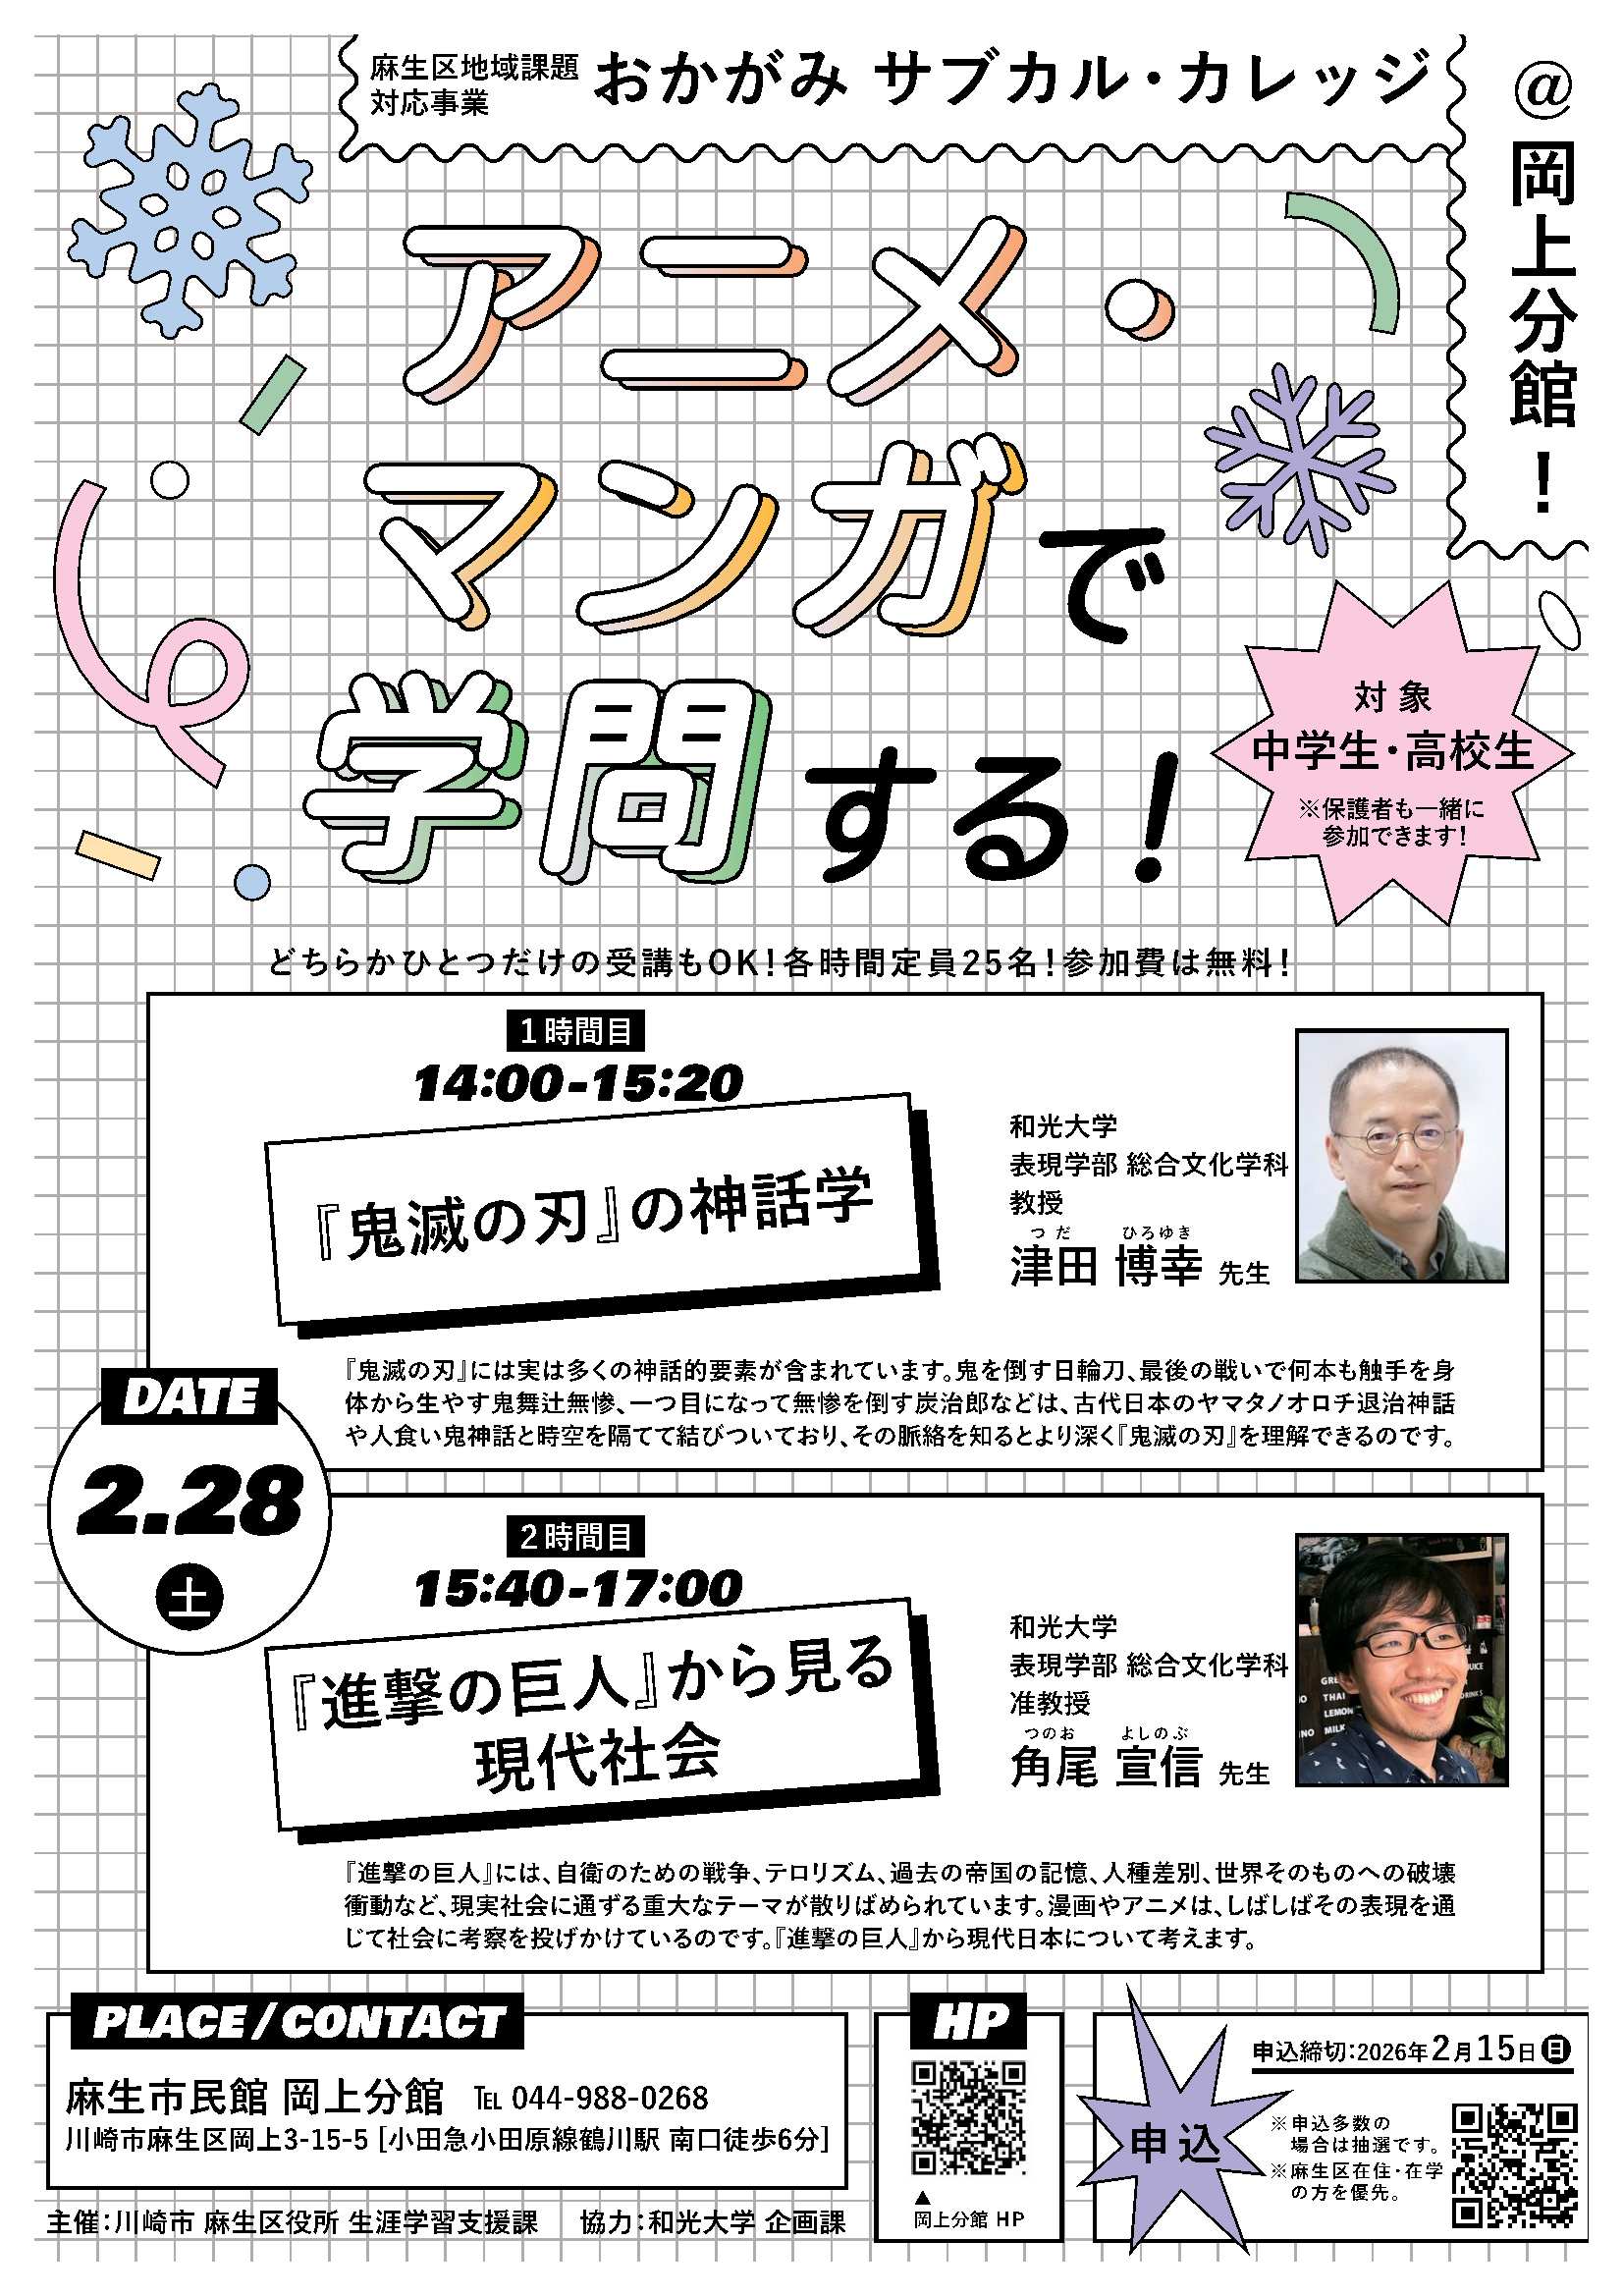 麻生区地域課題
対応事業
おかがみ サブカル・カレッジ
@岡上分館！
アニメ・
マンガで
学問する！
対象
中学生・高校生
※保護者も一緒に
参加できます！
どちらかひとつだけの受講もOK！各時間定員25名！参加費は無料！
1時間目
14:00-15:20
『鬼滅の刃』の神話学
和光大学
表現学部 総合文化学科
教授
つだ ひろゆき
津田 博幸 先生
『鬼滅の刃』には実は多くの神話的要素が含まれています。鬼を倒す日輪刀、最後の戦いで何本も触手を身
体から生やす鬼舞辻無惨、一つ目になって無惨を倒す炭治郎などは、古代日本のヤマタノオロチ退治神話
や人食い鬼神話と時空を隔てて結びついており、その脈絡を知るとより深く『鬼滅の刃』を理解できるのです。
DATE
2.28
土
2時間目
15:40-17:00
『進撃の巨人』から見る
現代社会
和光大学
表現学部 総合文化学科
准教授
つのお よしのぶ
角尾 宣信 先生
THAI
LEMON
MILK
『進撃の巨人』には、自衛のための戦争、テロリズム、過去の帝国の記憶、人種差別、世界そのものへの破壊
衝動など、現実社会に通ずる重大なテーマが散りばめられています。漫画やアニメは、しばしばその表現を通
じて社会に考察を投げかけているのです。『進撃の巨人』から現代日本について考えます。
PLACE/CONTACT
麻生市民館 岡上分館 TEL 044-988-0268
川崎市麻生区岡上3-15-5 [小田急小田原線鶴川駅 南口徒歩6分]
主催：川崎市 麻生区役所 生涯学習支援課 協力：和光大学 企画課
HP
▲
岡上分館 HP
申込
申込締切：2026年2月15日日
※申込多数の
場合は抽選です。
※麻生区在住・在学
の方を優先。